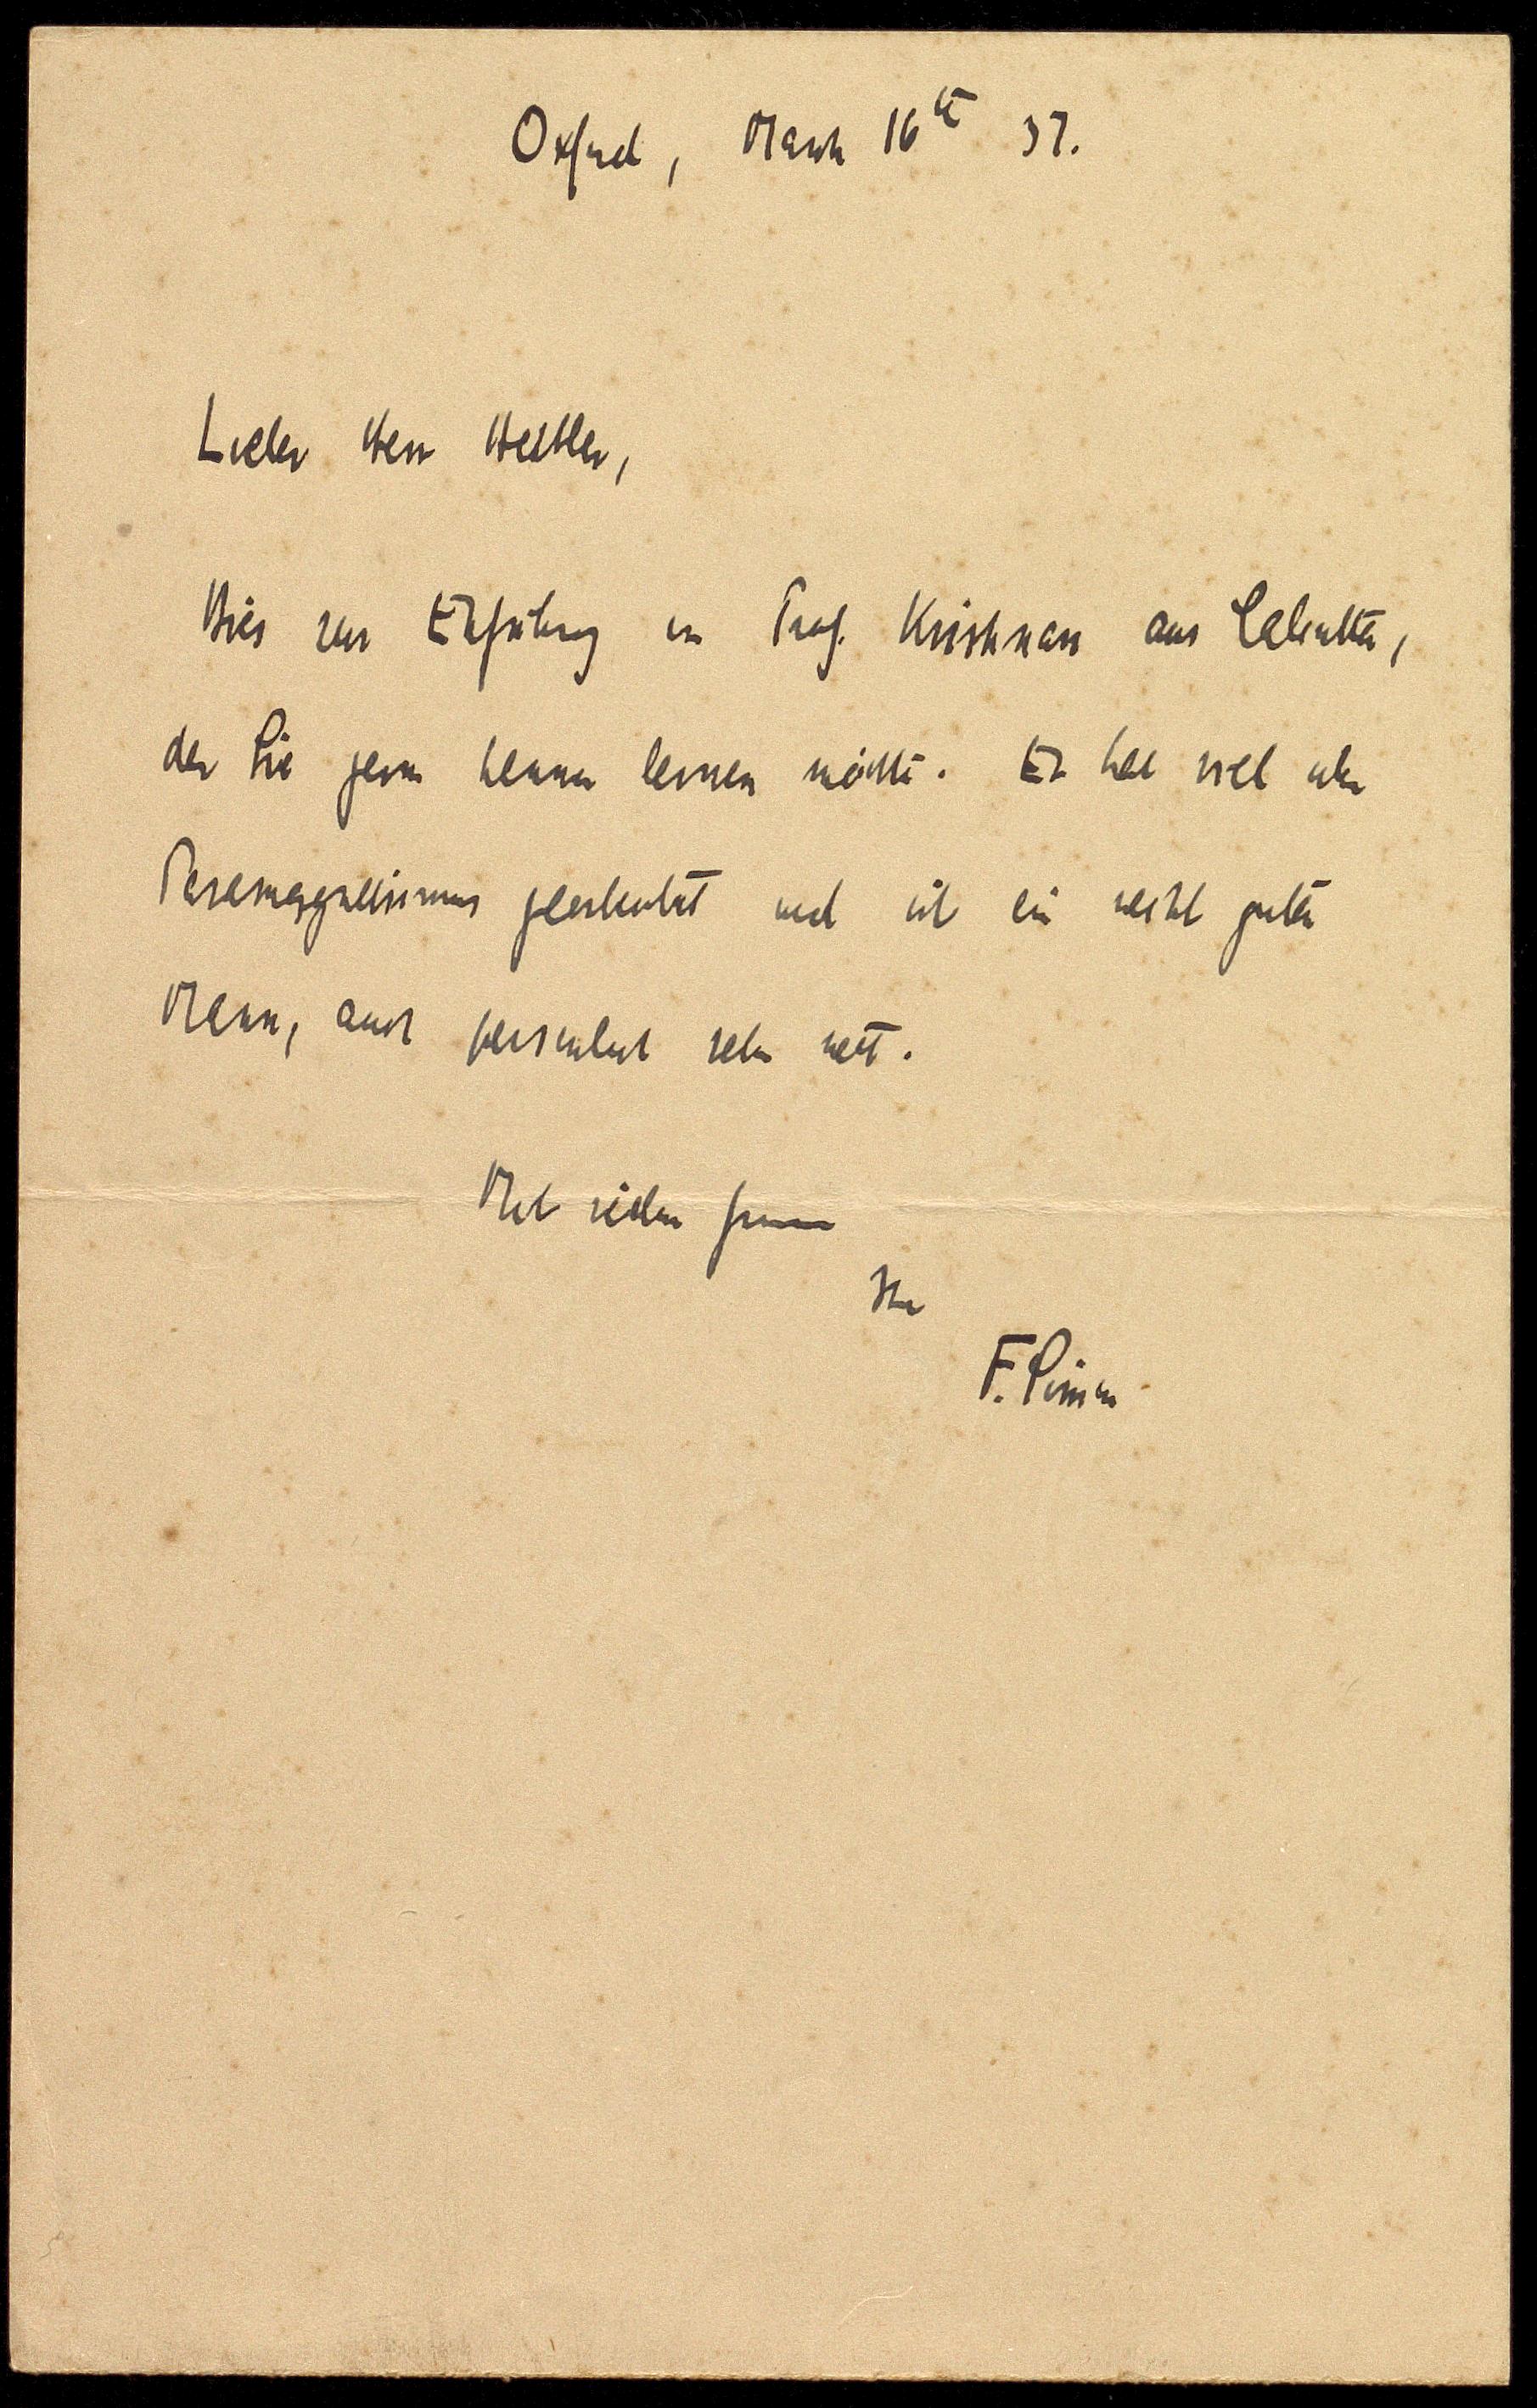 Oxford, March 16th 37.
Lieber Herr Heitler,
Dies zur Einführung von Prof. Krishnan aus Calcutta,
der Sie gern kennen lernen möchte. Er hat viel über
Paramagnetismus gearbeitet und ist ein recht guter
Mann, auch persönlich sehr nett.
Mit vielen Grüssen
Ihr
F. Simon